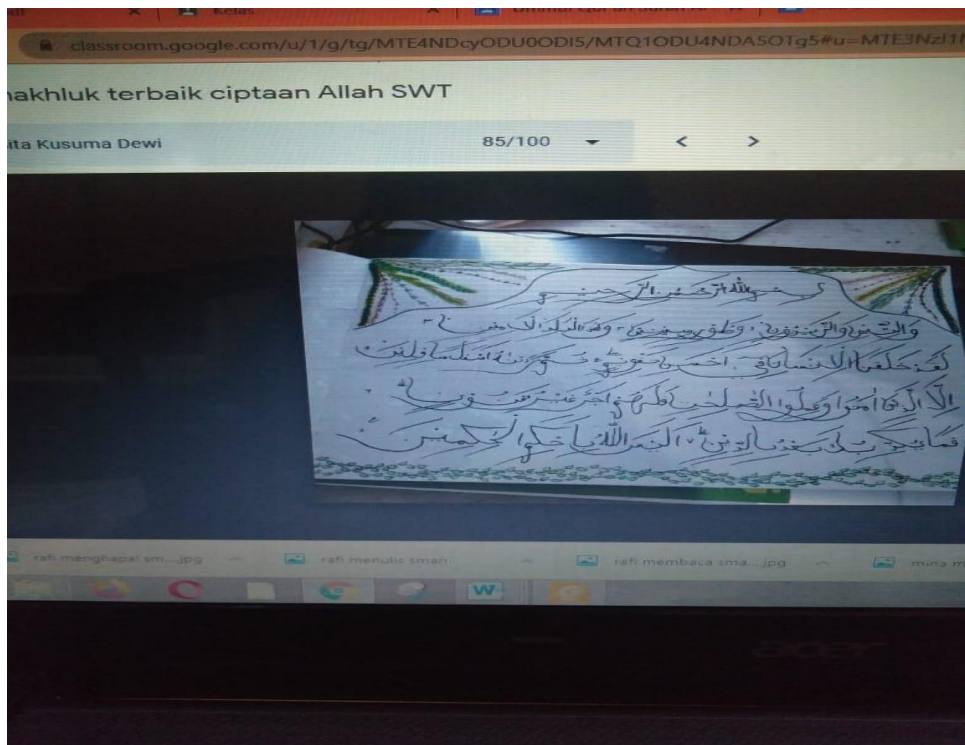 Kelas
classroom.google.com/u/1/g/tg/MTE4NDcyODU0ODI5/MTQ1ODU4NDA5OTg5#u=MTE3NzI1
makhluk terbaik ciptaan Allah SWT
ita Kusuma Dewi
85/100
بسم الله الرحمن الرحيم
والتين والزيتون وطور سينين وهذا البلد الامين
لقد خلقنا الانسان في احسن تقويم ثم رددنه اسفل سافلين
الا الذين امنوا وعملوا الصلحت فلهم اجر غير ممنون
فما يكذبك بعد بالدين اليس الله باحكم الحكمين
rafi menghapal sm...jpg
rafi menulis sman
rafi membaca sma...jpg
mina m
W
acer